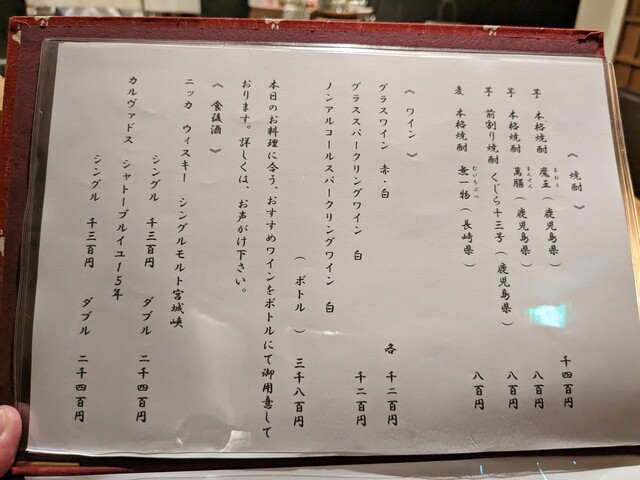 《 焼酎 》
芋 本格焼酎 魔王（鹿児島県） 千四百円
まおう
芋 本格焼酎 萬膳（鹿児島県） 八百円
まんぜん
芋 前割り焼酎 くじら十三号（鹿児島県） 八百円
麦 本格焼酎 無一物（長崎県） 八百円
むいちぶつ
《 ワイン 》
グラスワイン 赤・白 各 千二百円
グラススパークリングワイン 白 千二百円
ノンアルコールスパークリングワイン 白
（ ボトル ） 三千八百円
本日のお料理に合う、おすすめワインをボトルにて御用意して
おります。詳しくは、お声がけ下さい。
《 食後酒 》
ニッカ ウィスキー シングルモルト宮城峡
シングル 千三百円 ダブル 二千四百円
カルヴァドス シャトーブルイユ15年
シングル 千三百円 ダブル 二千四百円